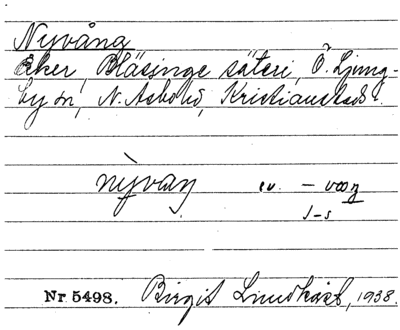 Nyvång
Åker, Bläsinge säteri, Ö. Ljung-
by sn, N. Åsbo hd, Kristianstads l.
ny̱vaŋ ev. – vωŋ
s–s
Nr 5498. Birgit Lundkvist, 1938.